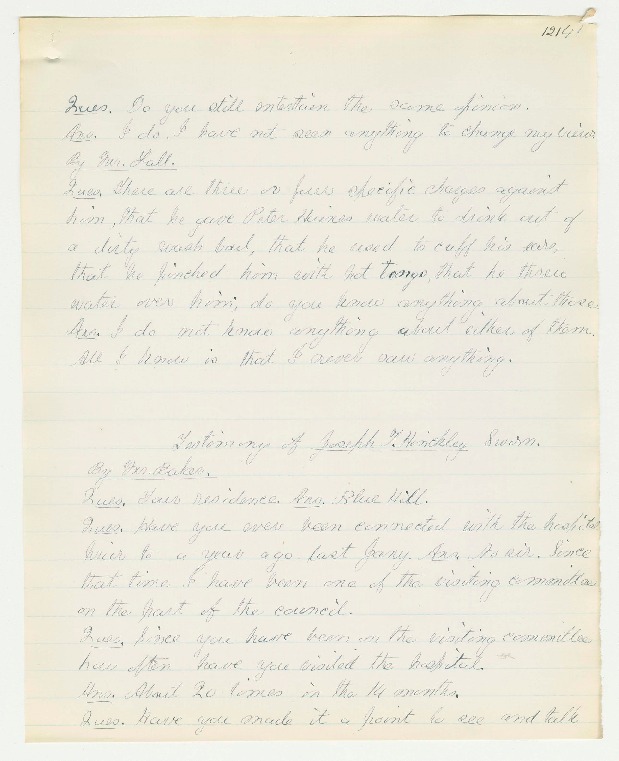 1214
Ques. Do you still entertain the same opinion.
Ans. I do. I have not seen anything to change my views
By Mr. Hall.
Ques. There are three or four specific charges against
him, that he gave Peter water to drink out of
a dirty wash bowl, that he used to cuff his ears,
that he pinched him with hot tongs, that he threw
water over him, do you know anything about these.
Ans. I do not know anything about either of them.
All I know is that I never saw anything.
Testimony of Joseph T. Hinckley Sworn.
By Mr. Baker.
Ques. Your residence. Ans. Blue Hill.
Ques. Have you ever been connected with the hospital
prior to a year ago last Jany. Ans. No sir. Since
that time I have been one of the visiting committee
on the part of the council.
Ques. Since you have been on the visiting committee
how often have you visited the hospital.
Ans. About 20 times in the 14 months.
Ques. Have you made it a point to see and talk